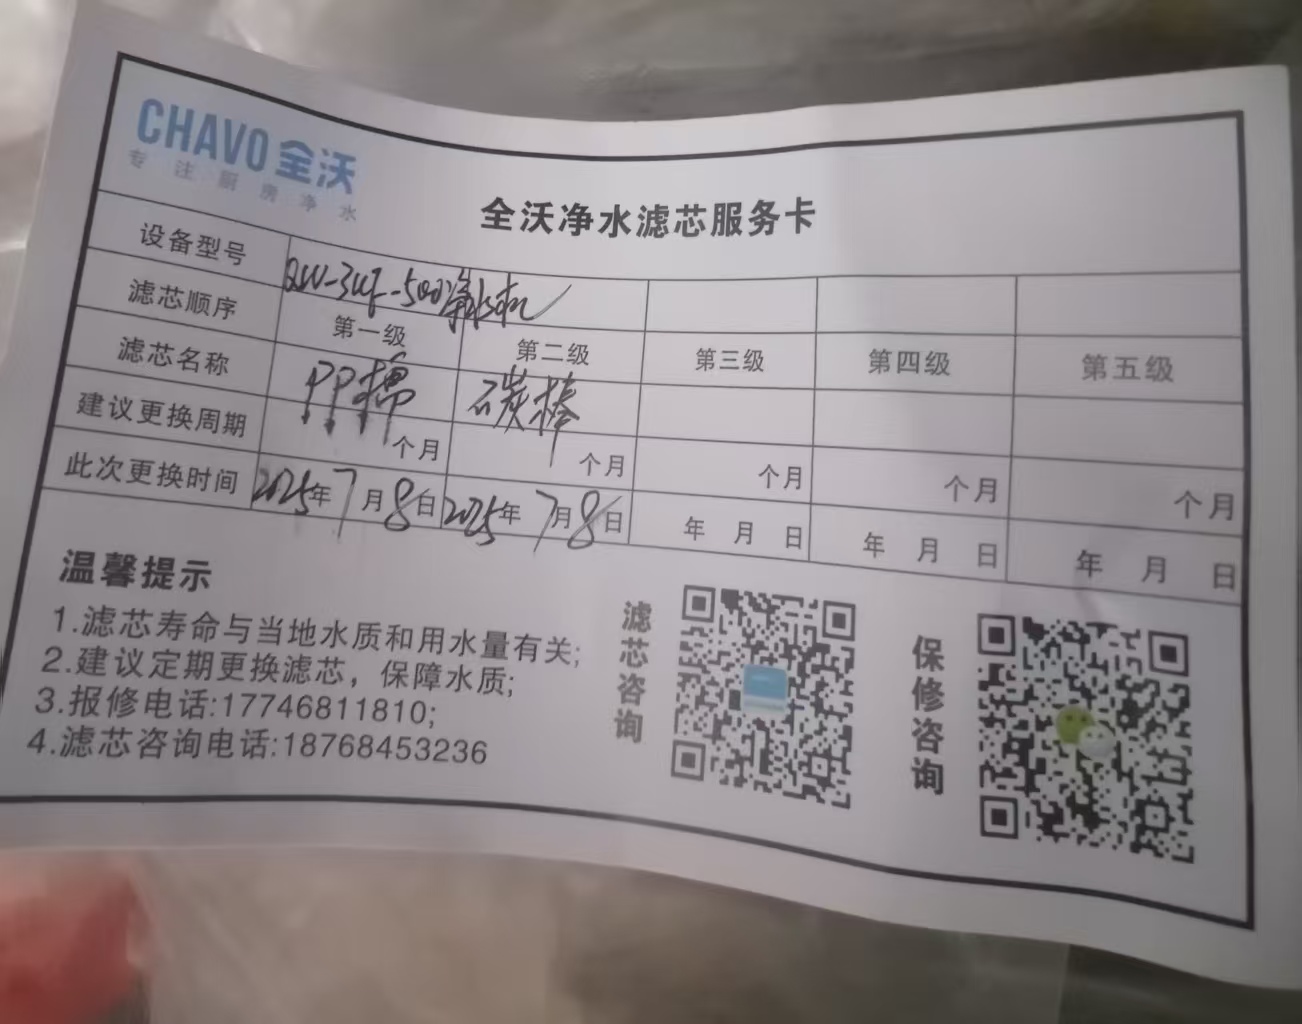 CHAVO 全沃
专注厨房净水
全沃净水滤芯服务卡
设备型号 QW-3UF-500净水机
滤芯顺序 第一级 第二级 第三级 第四级 第五级
滤芯名称 PP棉 碳棒
建议更换周期 个月 个月 个月 个月 个月
此次更换时间 2025年7月8日 2025年7月8日 年 月 日 年 月 日 年 月 日
温馨提示
1.滤芯寿命与当地水质和用水量有关;
2.建议定期更换滤芯，保障水质;
3.报修电话:17746811810;
4.滤芯咨询电话:18768453236
滤芯咨询
保修咨询